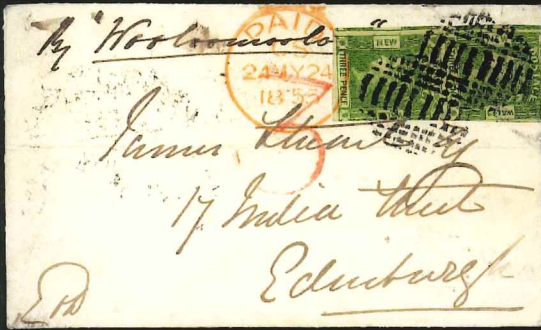 By "Woolloomooloo"
PAID
24 MY 24
185
NEW
THREE PENCE
WALES
James Stuart Esq
17 India Street
Edinburgh